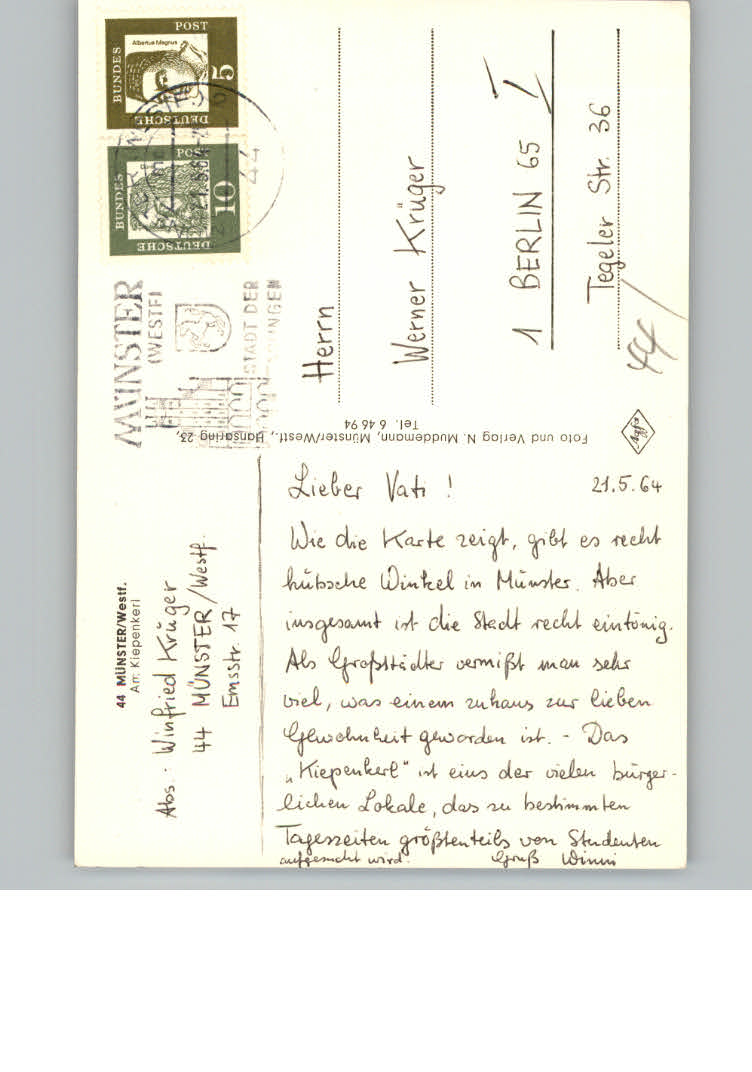 BUNDES
POST
Albertus Magnus
5
DEUTSCHE
BUNDES
POST
10
DEUTSCHE
21.5.64
44
MÜNSTER
(WESTF)
STADT DER
Herrn
Werner Krüger
1 BERLIN 65 I
Tegeler Str. 36
44/
Foto und Verlag N. Muddemann, Münster/Westf., Hansaring 23,
Tel. 6 46 94
efky
44 MÜNSTER/Westf.
Am Kiepenkerl
Abs.: Winfried Krüger
44 MÜNSTER/Westf.
Emsstr. 17
Lieber Vati! 21.5.64
Wie die Karte zeigt, gibt es recht
hübsche Winkel in Münster. Aber
insgesamt ist die Stadt recht eintönig.
Als Großstädter vermißt man sehr
viel, was einem zuhaus zur lieben
Gewohnheit geworden ist. - Das
„Kiepenkerl“ ist eins der vielen bürger-
lichen Lokale, das zu bestimmten
Tageszeiten größtenteils von Studenten
aufgesucht wird. Gruß Winni